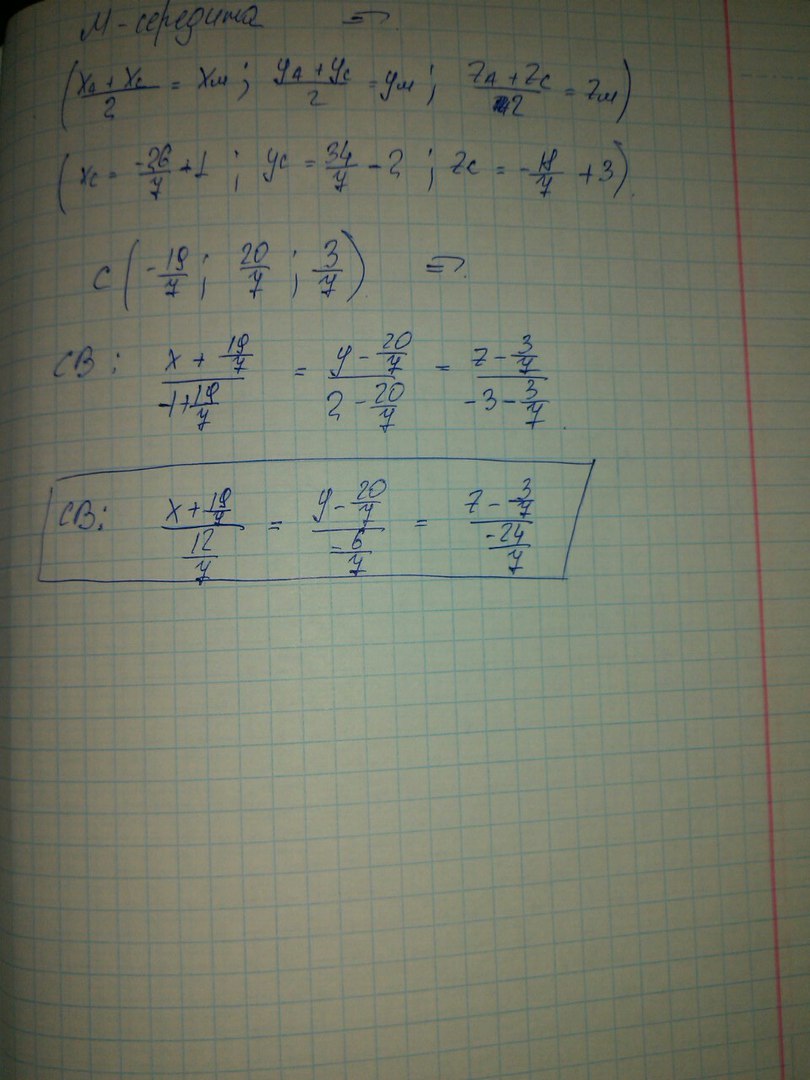 М - середина ⇒
(xA + xC / 2 = xM ; yA + yC / 2 = yM ; zA + zC / 2 = zM)
(xC = -26/7 + 1 ; yC = 34/7 - 2 ; zC = -18/7 + 3)
C (-19/7 ; 20/7 ; 3/7) ⇒
CB : x + 19/7 / -1 + 19/7 = y - 20/7 / 2 - 20/7 = z - 3/7 / -3 - 3/7
CB : x + 19/7 / 12/7 = y - 20/7 / -6/7 = z - 3/7 / -24/7